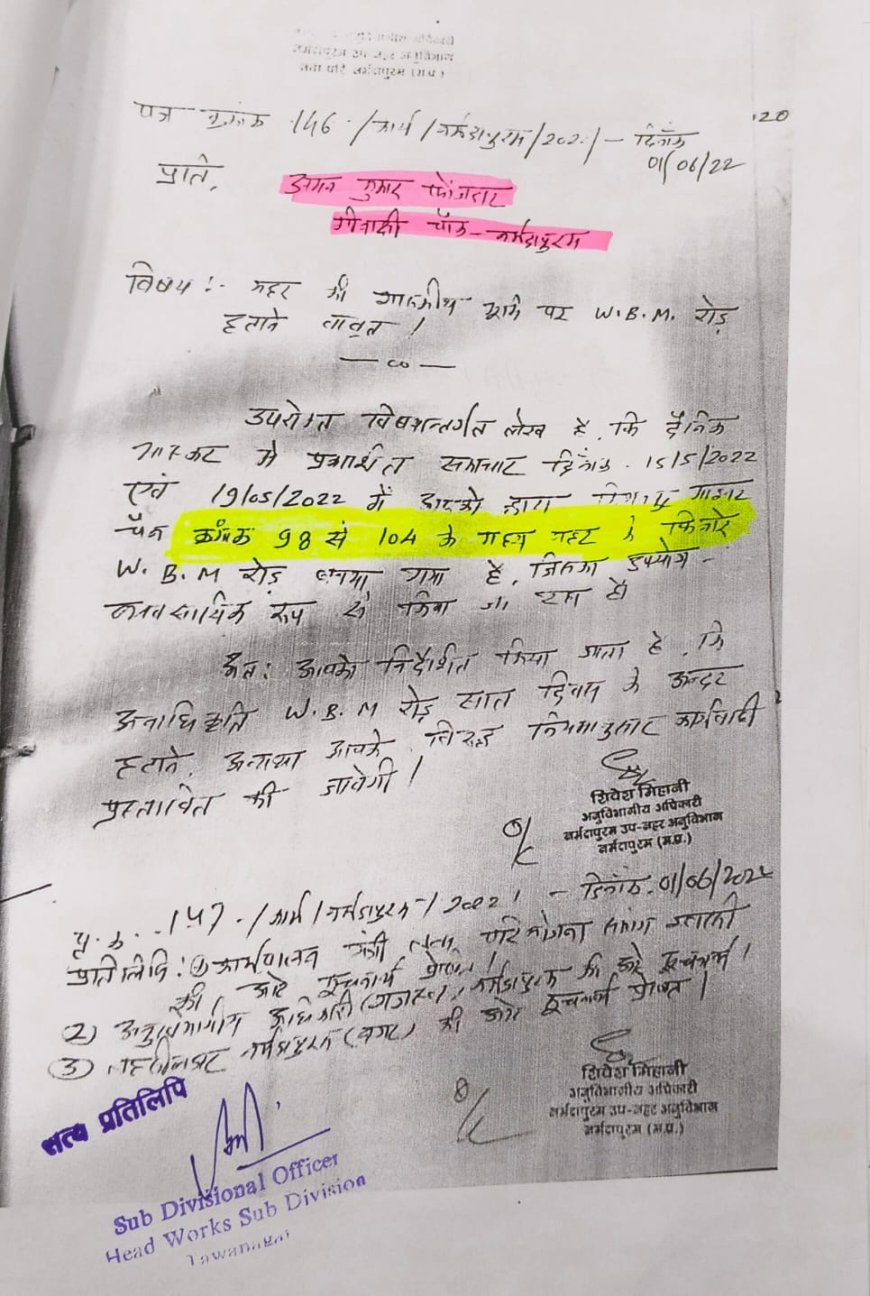 120
पत्र क्रमांक 146 / कार्य / नर्मदापुरम / 202 / - दिनाँक
01/06/22
प्रति,
कुमार फौजदार
चौक - नर्मदापुरम
विषय :- नहर की शासकीय भूमि पर W.B.M. रोड़
हटाने बावत ।
उपरोक्त विषयान्तर्गत लेख है, कि दैनिक
भास्कर में प्रकाशित समाचार दिनाँक 15/5/2022
एवं 19/05/2022 में आपके द्वारा
चैन क्रमांक 98 से 104 के मध्य नहर के किनारे
W.B.M रोड़ बनाया गया है, जिसका उपयोग -
व्यवसायिक रूप से किया जा रहा है।
अतः आपको निर्देशित किया जाता है, कि
अनाधिकृत W.B.M रोड़ सात दिवस के अन्दर
हटाले, अन्यथा आपके विरूद्ध नियमानुसार कार्यवाही
प्रस्तावित की जावेगी ।
शिवेश मिहानी
अनुविभागीय अधिकारी
नर्मदापुरम उप-नहर अनुविभाग
नर्मदापुरम (म.प्र.)
पृ. क्र. 147 / कार्य / नर्मदापुरम / 2022 / - दिनाँक 01/06/2022
प्रतिलिपि : ① कार्यपालन यंत्री तवा परियोजना संभाग इटारसी
की ओर सूचनार्थ प्रेषित ।
2) अनुविभागीय अधिकारी (राजस्व) नर्मदापुरम की ओर सूचनार्थ ।
③ तहसीलदार नर्मदापुरम (नगर) की ओर सूचनार्थ प्रेषित ।
शिवेश मिहानी
अनुविभागीय अधिकारी
नर्मदापुरम उप-नहर अनुविभाग
नर्मदापुरम (म.प्र.)
सत्य प्रतिलिपि
Sub Divisional Officer
Head Works Sub Division
Tawanagar